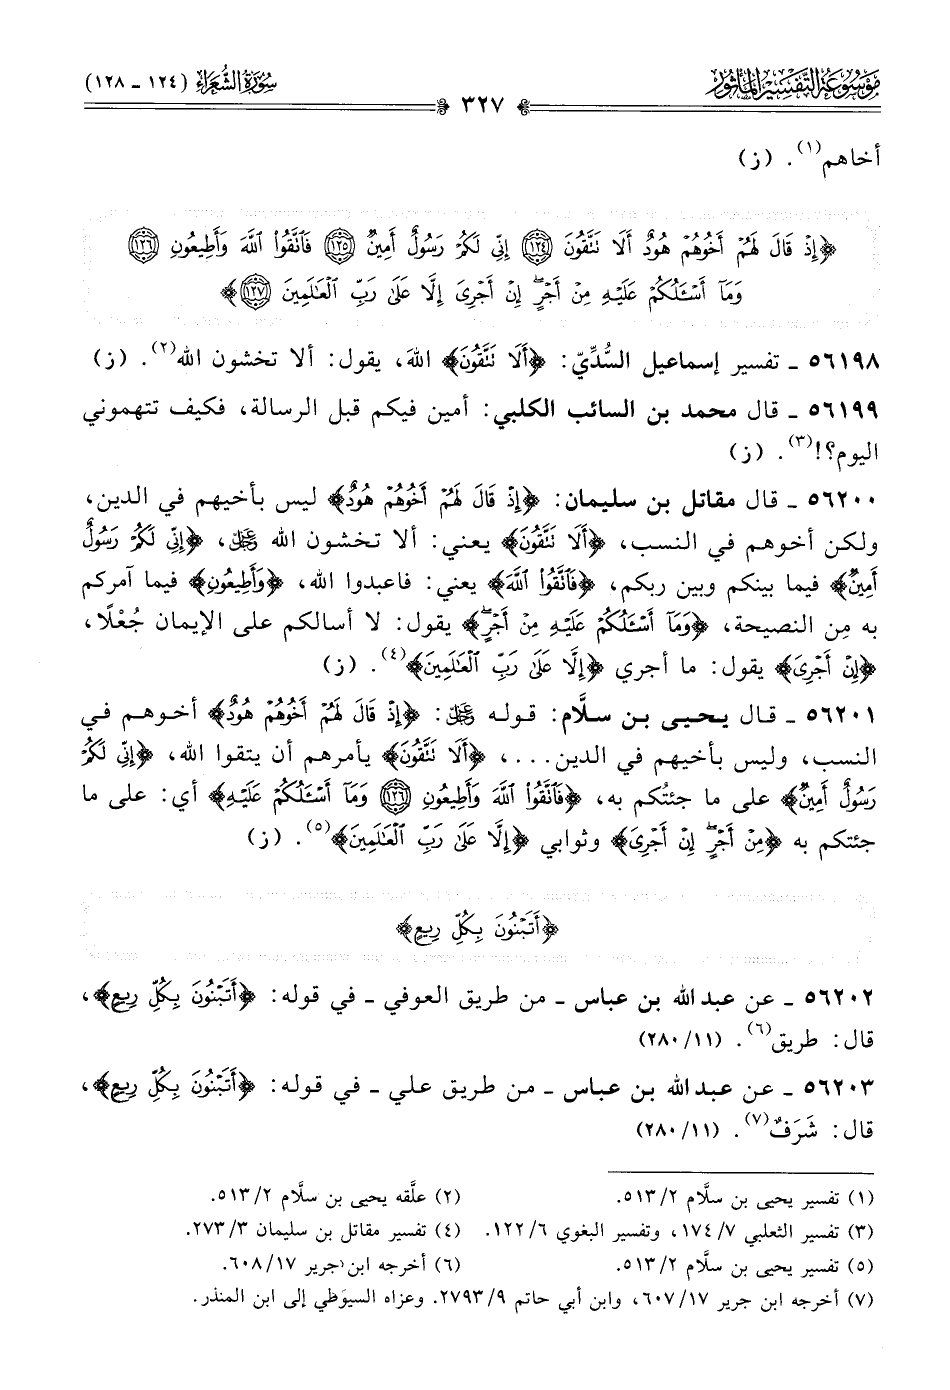 مَوْسُوعَةُ التَّفْسِيرِ المَأْثُور
سُورَةُ الشُّعَرَاءِ (١٢٤ ـ ١٢٨)
٣٢٧
أخاهم(١). (ز)
﴿إِذْ قَالَ لَهُمْ أَخُوهُمْ هُودٌ أَلَا تَتَّقُونَ ١٢٤ إِنِّي لَكُمْ رَسُولٌ أَمِينٌ ١٢٥ فَاتَّقُوا اللَّهَ وَأَطِيعُونِ ١٢٦
وَمَا أَسْئَلُكُمْ عَلَيْهِ مِنْ أَجْرٍ إِنْ أَجْرِىَ إِلَّا عَلَى رَبِّ الْعَالَمِينَ ١٢٧﴾
٥٦١٩٨ ـ تفسير إسماعيل السُّدِّيّ: ﴿أَلَا تَتَّقُونَ﴾ اللهَ، يقول: ألا تخشون الله(٢). (ز)
٥٦١٩٩ ـ قال محمد بن السائب الكلبي: أمين فيكم قبل الرسالة، فكيف تتهموني
اليوم؟!(٣). (ز)
٥٦٢٠٠ ـ قال مقاتل بن سليمان: ﴿إِذْ قَالَ لَهُمْ أَخُوهُمْ هُودٌ﴾ ليس بأخيهم في الدين،
ولكن أخوهم في النسب، ﴿أَلَا تَتَّقُونَ﴾ يعني: ألا تخشون الله ﷿، ﴿إِنِّي لَكُمْ رَسُولٌ
أَمِينٌ﴾ فيما بينكم وبين ربكم، ﴿فَاتَّقُوا اللَّهَ﴾ يعني: فاعبدوا الله، ﴿وَأَطِيعُونِ﴾ فيما آمركم
به مِن النصيحة، ﴿وَمَا أَسْئَلُكُمْ عَلَيْهِ مِنْ أَجْرٍ﴾ يقول: لا أسالكم على الإيمان جُعْلًا،
﴿إِنْ أَجْرِىَ﴾ يقول: ما أجري ﴿إِلَّا عَلَى رَبِّ الْعَالَمِينَ﴾(٤). (ز)
٥٦٢٠١ ـ قال يحيى بن سلَّام: قوله ﷿: ﴿إِذْ قَالَ لَهُمْ أَخُوهُمْ هُودٌ﴾ أخوهم في
النسب، وليس بأخيهم في الدين...، ﴿أَلَا تَتَّقُونَ﴾ يأمرهم أن يتقوا الله، ﴿إِنِّي لَكُمْ
رَسُولٌ أَمِينٌ﴾ على ما جئتُكم به، ﴿فَاتَّقُوا اللَّهَ وَأَطِيعُونِ ١٢٦ وَمَا أَسْئَلُكُمْ عَلَيْهِ﴾ أي: على ما
جئتكم به ﴿مِنْ أَجْرٍ إِنْ أَجْرِىَ﴾ وثوابي ﴿إِلَّا عَلَى رَبِّ الْعَالَمِينَ﴾(٥). (ز)
﴿أَتَبْنُونَ بِكُلِّ رِيعٍ﴾
٥٦٢٠٢ ـ عن عبد الله بن عباس ـ من طريق العوفي ـ في قوله: ﴿أَتَبْنُونَ بِكُلِّ رِيعٍ﴾،
قال: طريق(٦). (٢٨٠/١١)
٥٦٢٠٣ ـ عن عبد الله بن عباس ـ من طريق علي ـ في قوله: ﴿أَتَبْنُونَ بِكُلِّ رِيعٍ﴾،
قال: شَرَفٌ(٧). (٢٨٠/١١)
(١) تفسير يحيى بن سلَّام ٥١٣/٢. (٢) علَّقه يحيى بن سلَّام ٥١٣/٢.
(٣) تفسير الثعلبي ١٧٤/٧، وتفسير البغوي ١٢٢/٦. (٤) تفسير مقاتل بن سليمان ٢٧٣/٣.
(٥) تفسير يحيى بن سلَّام ٥١٣/٢. (٦) أخرجه ابن جرير ٦٠٨/١٧.
(٧) أخرجه ابن جرير ٦٠٧/١٧، وابن أبي حاتم ٢٧٩٣/٩. وعزاه السيوطي إلى ابن المنذر.